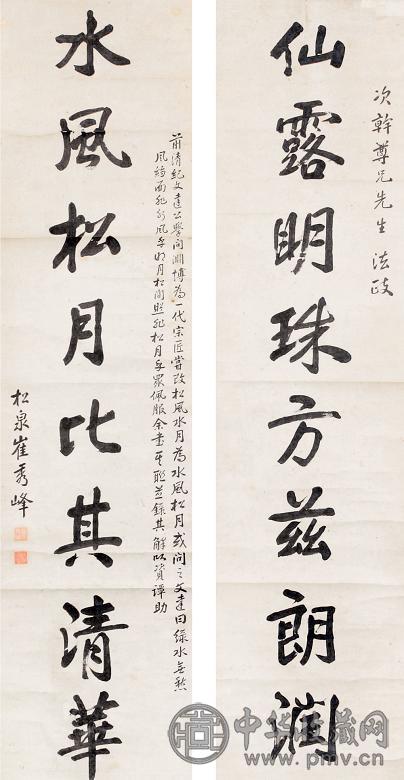 次幹尊兄先生 法政
仙露明珠方兹朗潤
前清紀文達公學問淵博為一代宗匠嘗改松風水月為水風松月或問之文達曰綠水無愁
風縐面非水風乎明月松間照非松月乎眾佩服余書是聯並錄其解以資譚助
水風松月比其清華
松泉崔秀峰
中华收藏网
www.pmv.cn